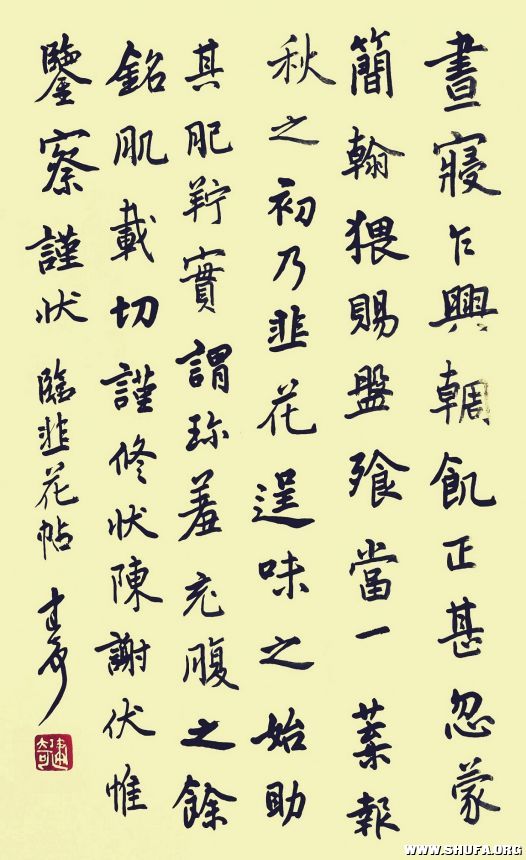 晝寢乍興輖飢正甚忽蒙
簡翰猥賜盤飱當一葉報
秋之初乃韭花逞味之始助
其肥羜實謂珍羞充腹之餘
銘肌載切謹修狀陳謝伏惟
鑒察謹狀 臨韭花帖
WWW.SHUFA.ORG